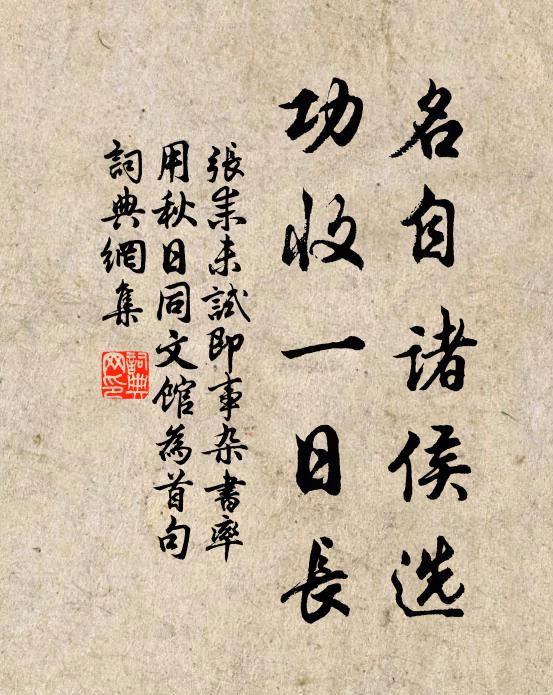 名自诸侯选
功收一日長
張耒未試即事杂書率
用秋日同文馆為首句
詞典網集
詞典网印